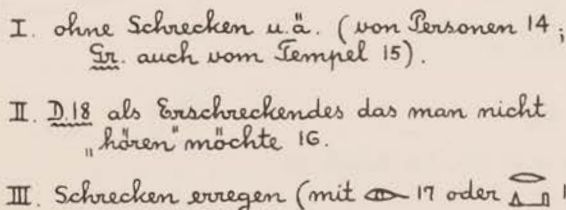 I. ohne Schrecken u.ä. (von Personen 14;
Gr. auch vom Tempel 15).
II. D.18 als Erschreckendes das man nicht
„hören" möchte 16.
III. Schrecken erregen (mit 𓁹 17 oder 𓂋𓏙